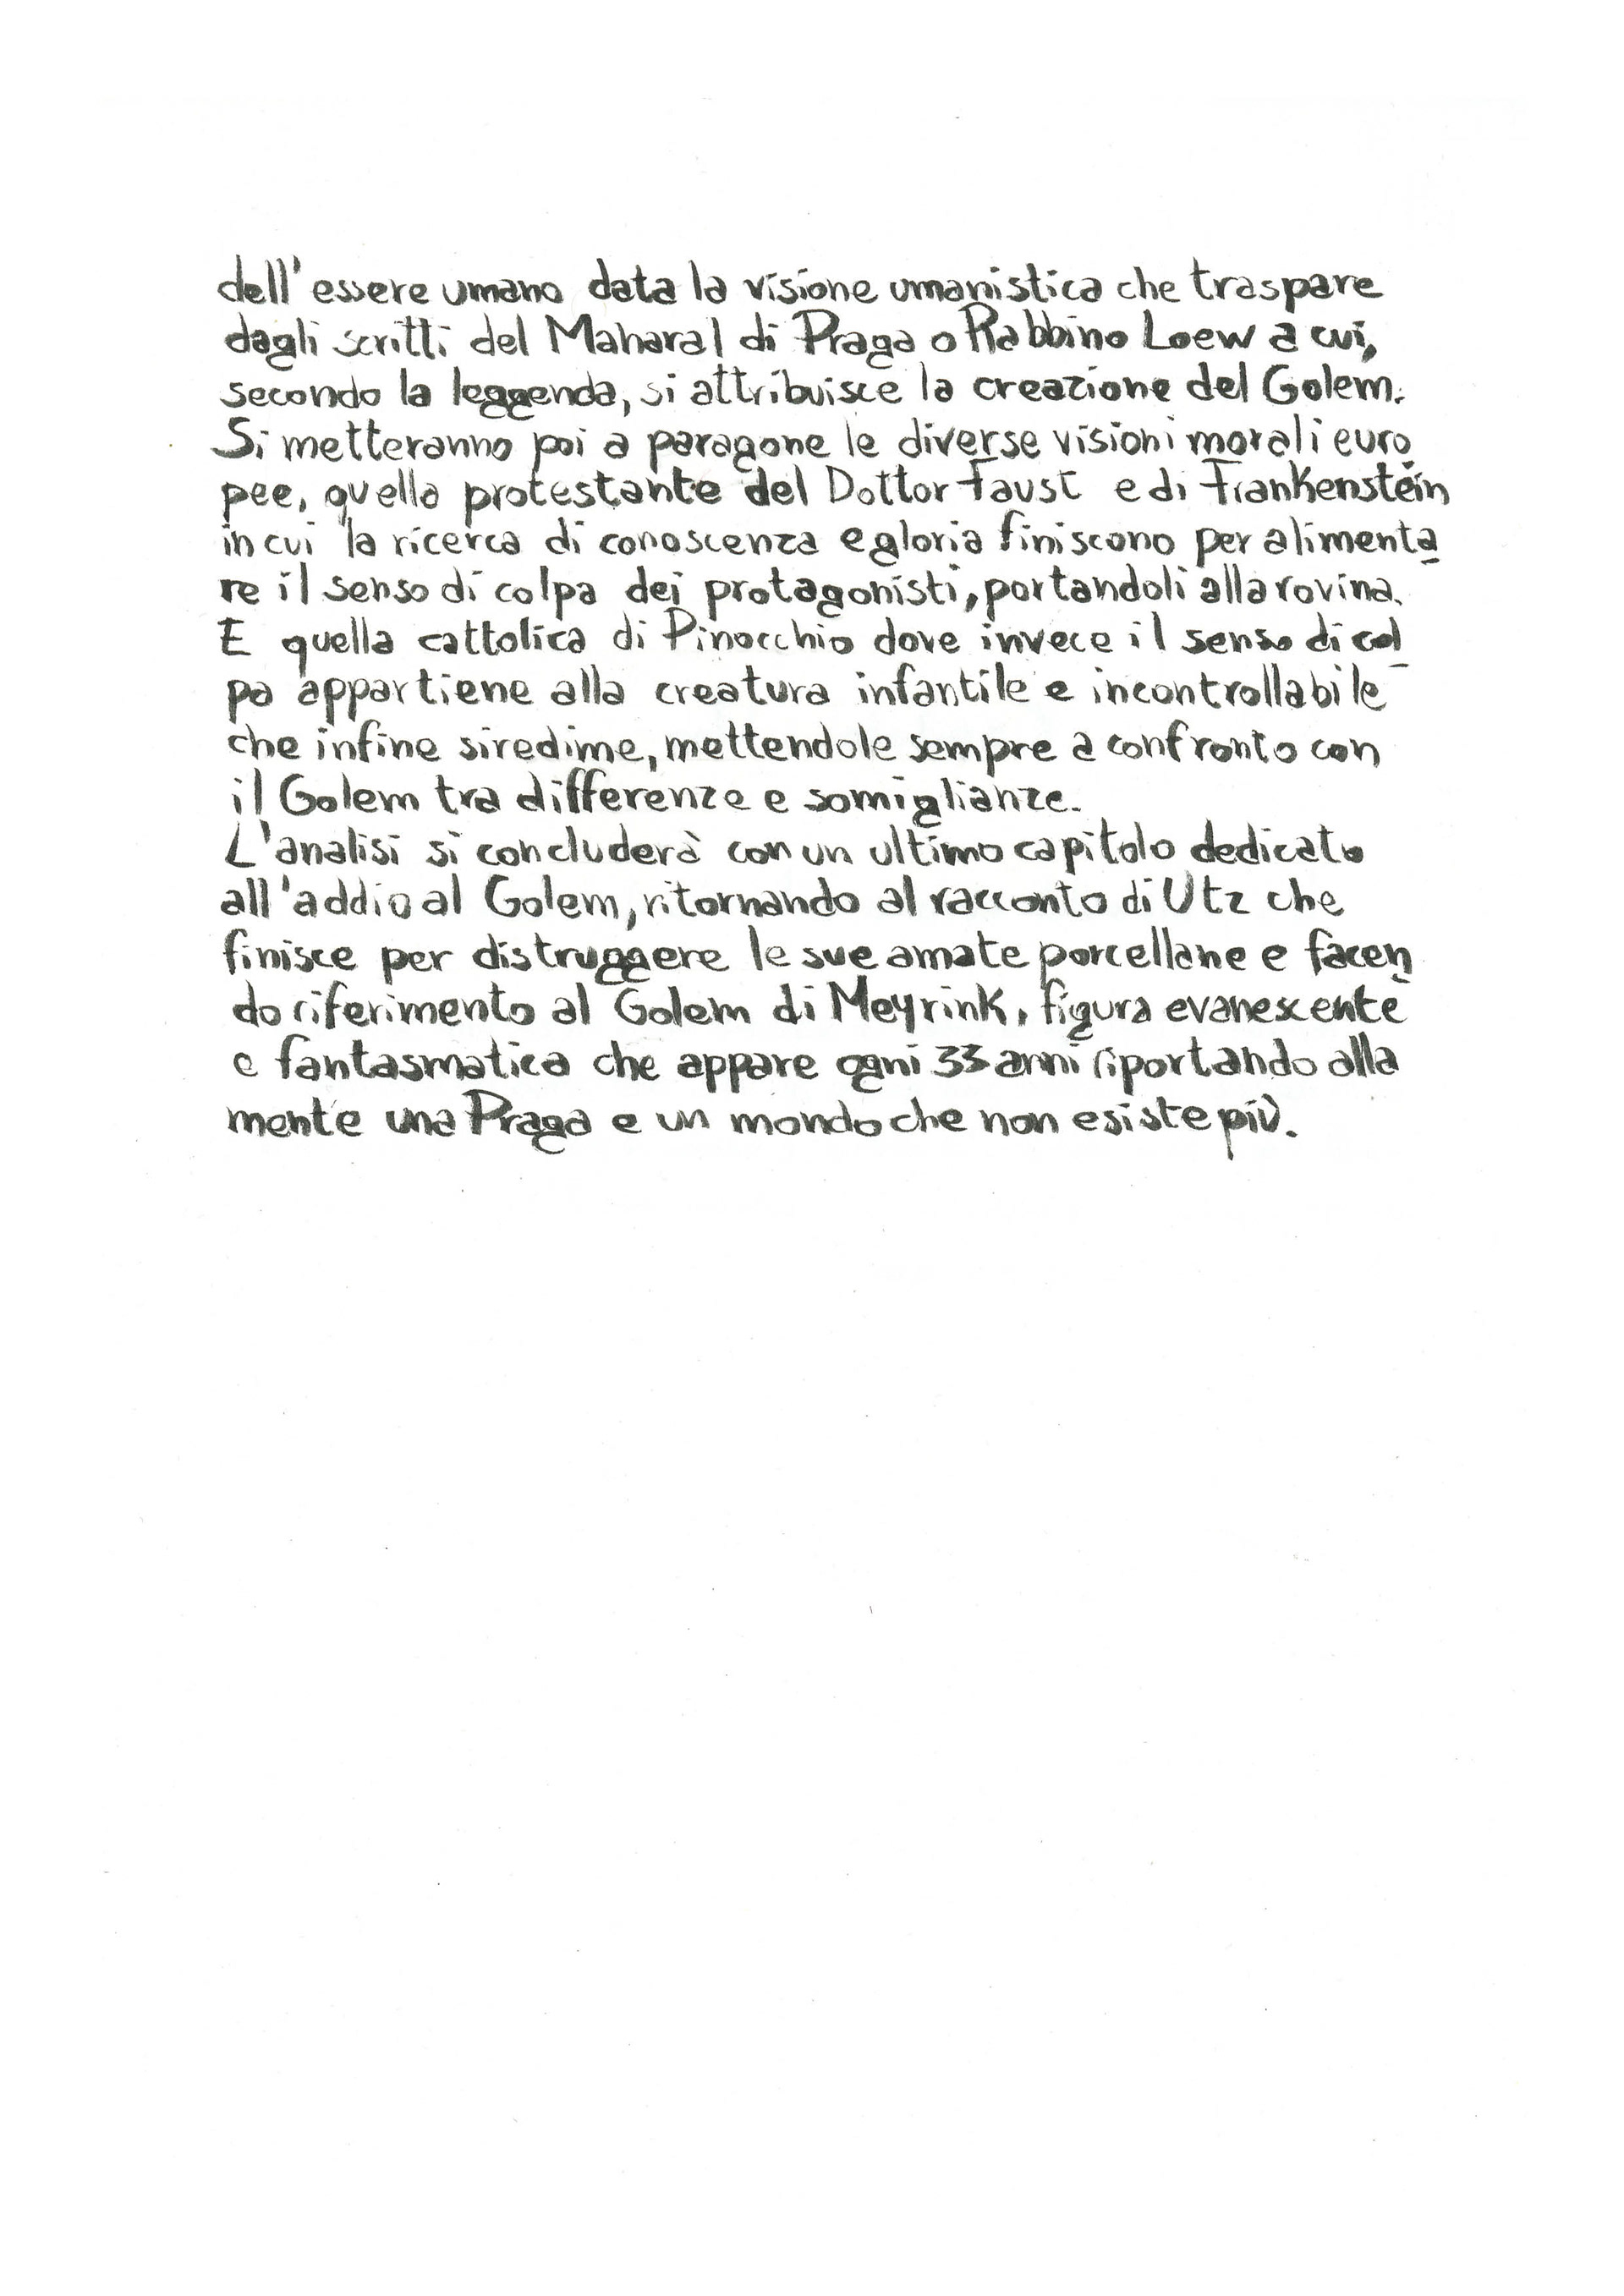 dell'essere umano data la visione umanistica che traspare
dagli scritti del Maharal di Praga o Rabbino Loew a cui,
secondo la leggenda, si attribuisce la creazione del Golem.
Si metteranno poi a paragone le diverse visioni morali euro
pee, quella protestante del Dottor Faust e di Frankenstein
in cui la ricerca di conoscenza e gloria finiscono per alimenta
re il senso di colpa dei protagonisti, portandoli alla rovina.
E quella cattolica di Pinocchio dove invece il senso di col
pa appartiene alla creatura infantile e incontrollabile
che infine si redime, mettendole sempre a confronto con
il Golem tra differenze e somiglianze.
L'analisi si concluderà con un ultimo capitolo dedicato
all'addio al Golem, ritornando al racconto di Utz che
finisce per distruggere le sue amate porcellane e facen
do riferimento al Golem di Meyrink, figura evanescente
e fantasmatica che appare ogni 33 anni riportando alla
mente una Praga e un mondo che non esiste più.